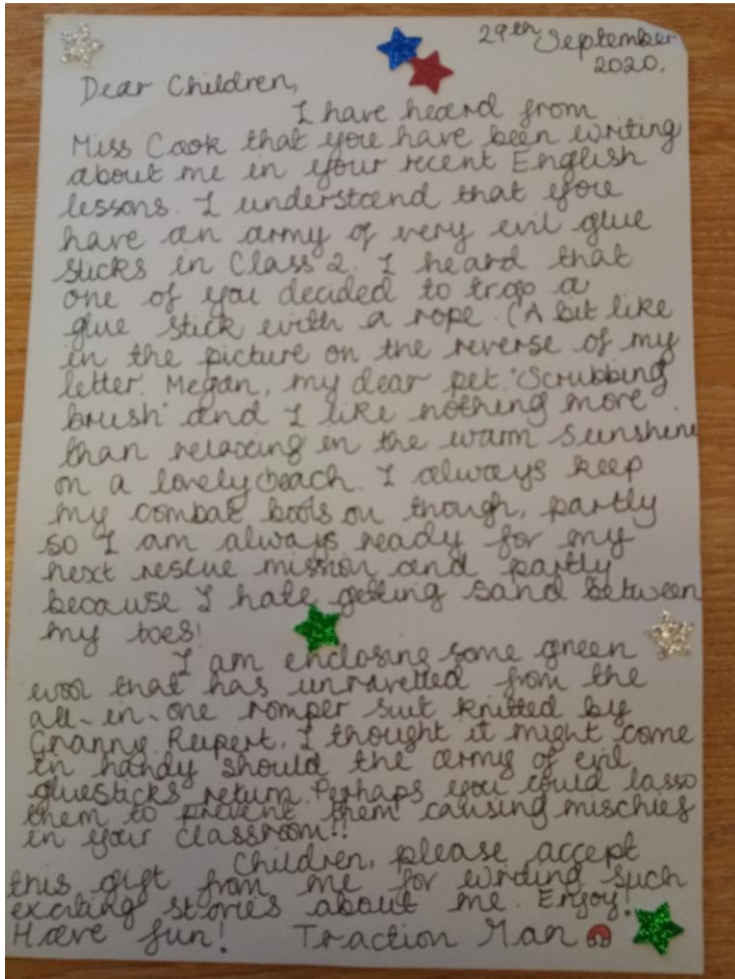 29th September
2020.
Dear Children,
I have heard from
Miss Cook that you have been writing
about me in your recent English
lessons. I understand that you
have an army of very evil glue
sticks in Class 2. I heard that
one of you decided to trap a
glue stick with a rope. (A bit like
in the picture on the reverse of my
letter. Megan, my dear pet 'Scrubbing
brush' and I like nothing more
than relaxing in the warm sunshine
on a lovely beach. I always keep
my combat boots on though, partly
so I am always ready for my
next rescue mission and partly
because I hate getting sand between
my toes!
I am enclosing some green
wool that has unravelled from the
all-in-one romper suit knitted by
Granny. Rupert, I thought it might come
in handy should the army of evil
gluesticks return. Perhaps you could lasso
them to prevent them causing mischief
in your classroom!!
Children, please accept
this gift from me for writing such
exciting stories about me. Enjoy!
Have fun! Traction Man